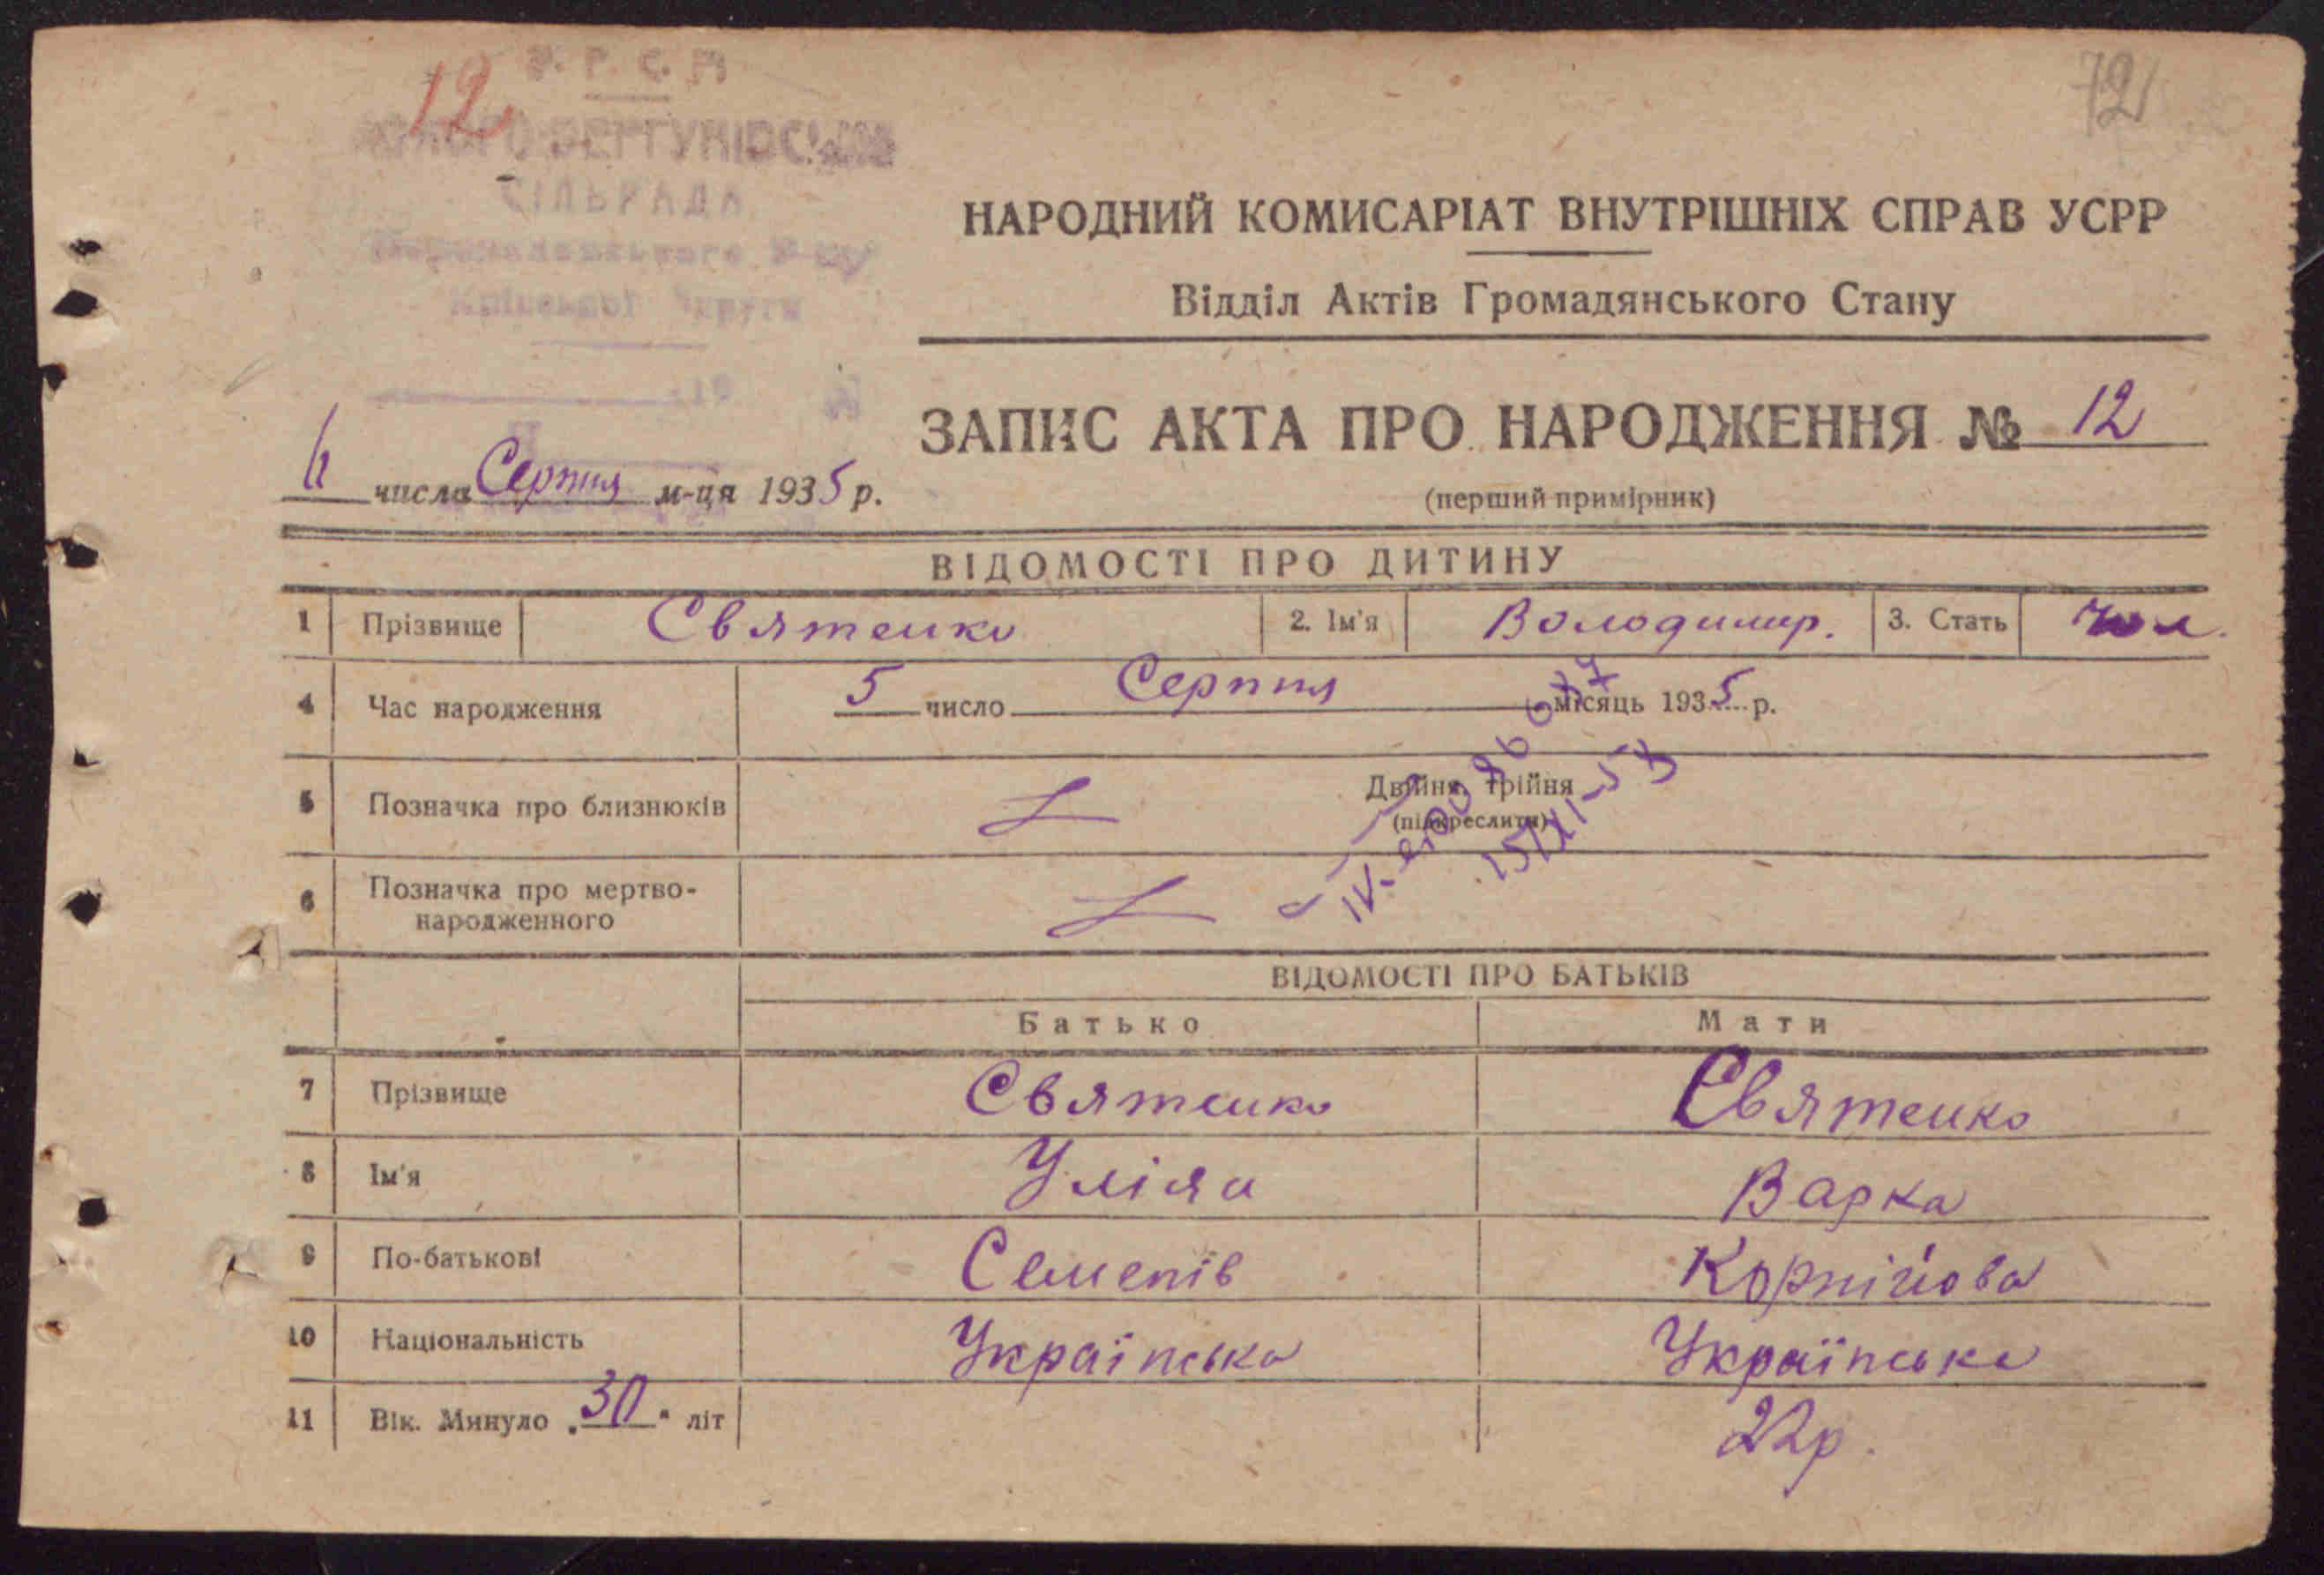 12
72
СІЛЬРАДА
НАРОДНИЙ КОМИСАРІАТ ВНУТРІШНІХ СПРАВ УСРР
Відділ Актів Громадянського Стану
ЗАПИС АКТА ПРО НАРОДЖЕННЯ № 12
6 числа Серпня м-ця 1935 р.
(перший примірник)
ВІДОМОСТІ ПРО ДИТИНУ
1 Прізвище Святенко 2. Ім'я Володимир. 3. Стать чол.
4 Час народження 5 число Серпня місяць 1935 р.
5 Позначка про близнюків Двійня, трійня
(підкреслити)
6 Позначка про мертво-
народженного
ВІДОМОСТІ ПРО БАТЬКІВ
Батько Мати
7 Прізвище Святенко Святенко
8 Ім'я Уліян Варка
9 По-батькові Семенів Корнійова
10 Національність Українська Українська
11 Вік. Минуло „30" літ 22 р.